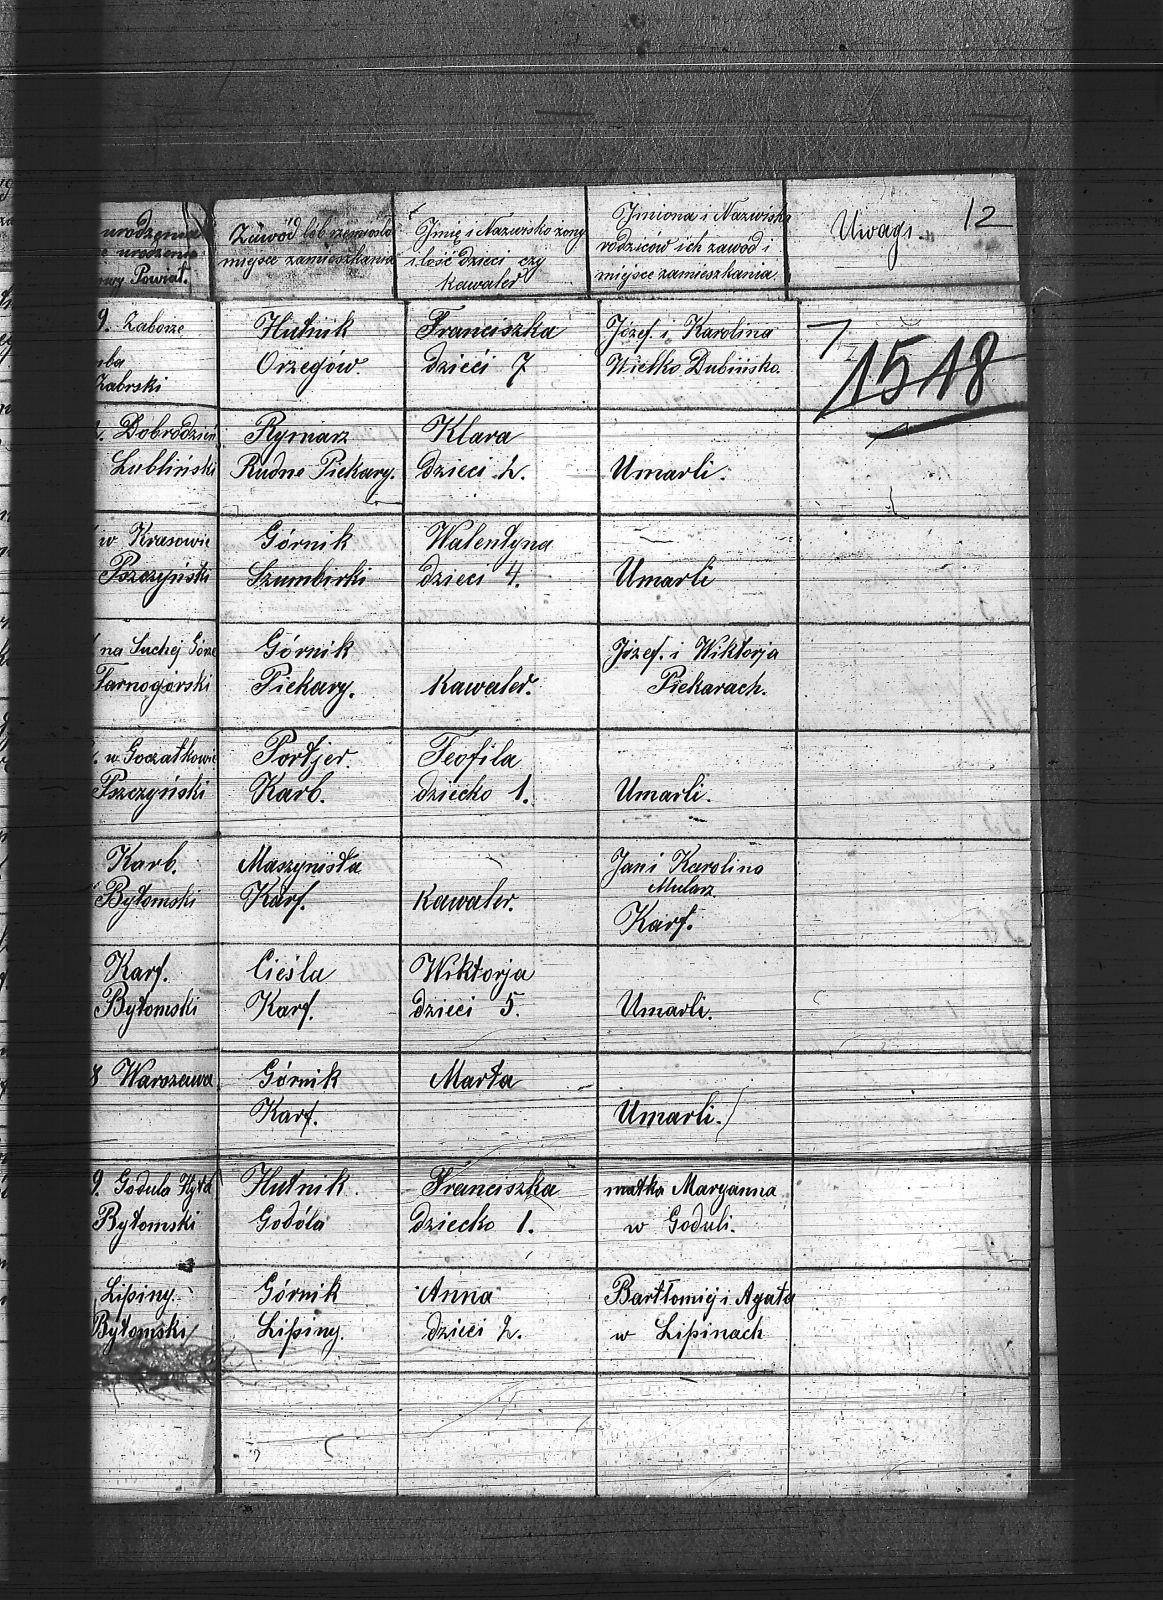 urodzenia
urodzenia
Powiat.
Zawód lub rzemiosło
miejsce zamieszkania
Imię i Nazwisko żony
ilość dzieci czy
kawaler
Imiona i Nazwiska
rodziców ich zawód i
miejsce zamieszkania
Uwagi
12
9. Zaborze
Zabrski
Hutnik
Orzegów
Franciszka
dzieci 7
Józef i Karolina
Wielko Dubińsko
1518
Dobrodzień
Lubliński
Rymarz
Rudne Piekary.
Klara
dzieci 2.
Umarli.
w Krasowie
Pszczyński
Górnik
Szumbirki
Walentyna
dzieci 4.
Umarli
na Suchej Górze
Tarnogórski
Górnik
Piekary.
Kawaler.
Józef i Wiktorja
Piekarach.
w Goczałkowie
Pszczyński
Portjer.
Karb.
Teofila
dziecko 1.
Umarli.
Karb.
Bytomski
Maszynista
Karf.
Kawaler.
Jan i Karolina
Mularz
Karf.
Karf.
Bytomski
Cieśla
Karf.
Wiktorja
dzieci 5.
Umarli.
8 Warszawa
Górnik
Karf.
Marta
Umarli.
9. Godula Hyta
Bytomski
Hutnik.
Godóla
Franciszka
dziecko 1.
matka Maryanna
w Goduli.
Lipiny.
Bytomski
Górnik
Lipiny.
Anna
dzieci 2.
Bartłomiej i Agata
w Lipinach